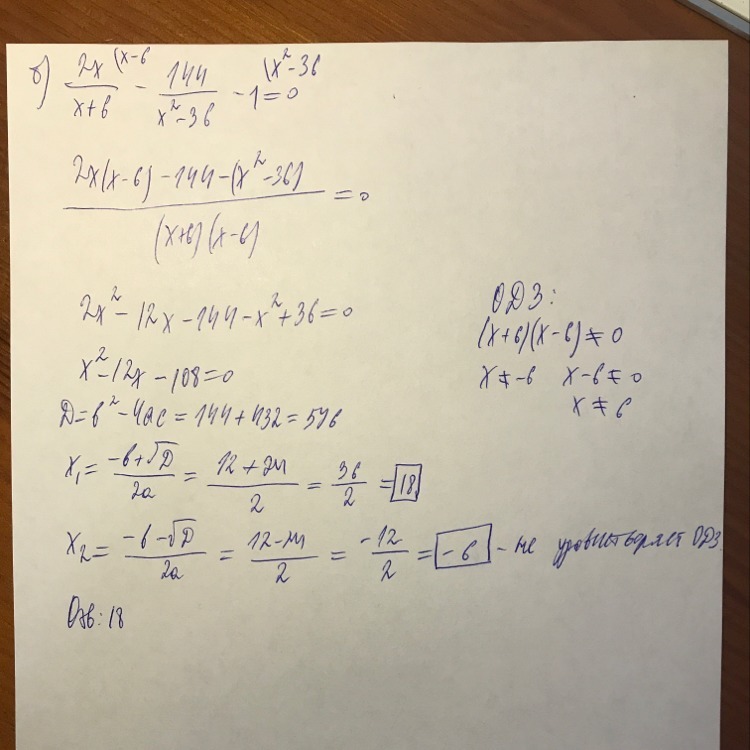 б) 2x (x-6 / x+6 - 144 / x²-36 - 1 (x²-36 = 0
2x(x-6) - 144 - (x²-36) / (x+6)(x-6) = 0
2x² - 12x - 144 - x² + 36 = 0
x² - 12x - 108 = 0
D = b² - 4ac = 144 + 432 = 576
x₁ = -b+√D / 2a = 12+24 / 2 = 36 / 2 = 18
x₂ = -b-√D / 2a = 12-24 / 2 = -12 / 2 = -6 - не удовлетворяет ОДЗ.
Отв: 18
ОДЗ:
(x+6)(x-6) ≠ 0
x ≠ -6 x-6 ≠ 0
x ≠ 6